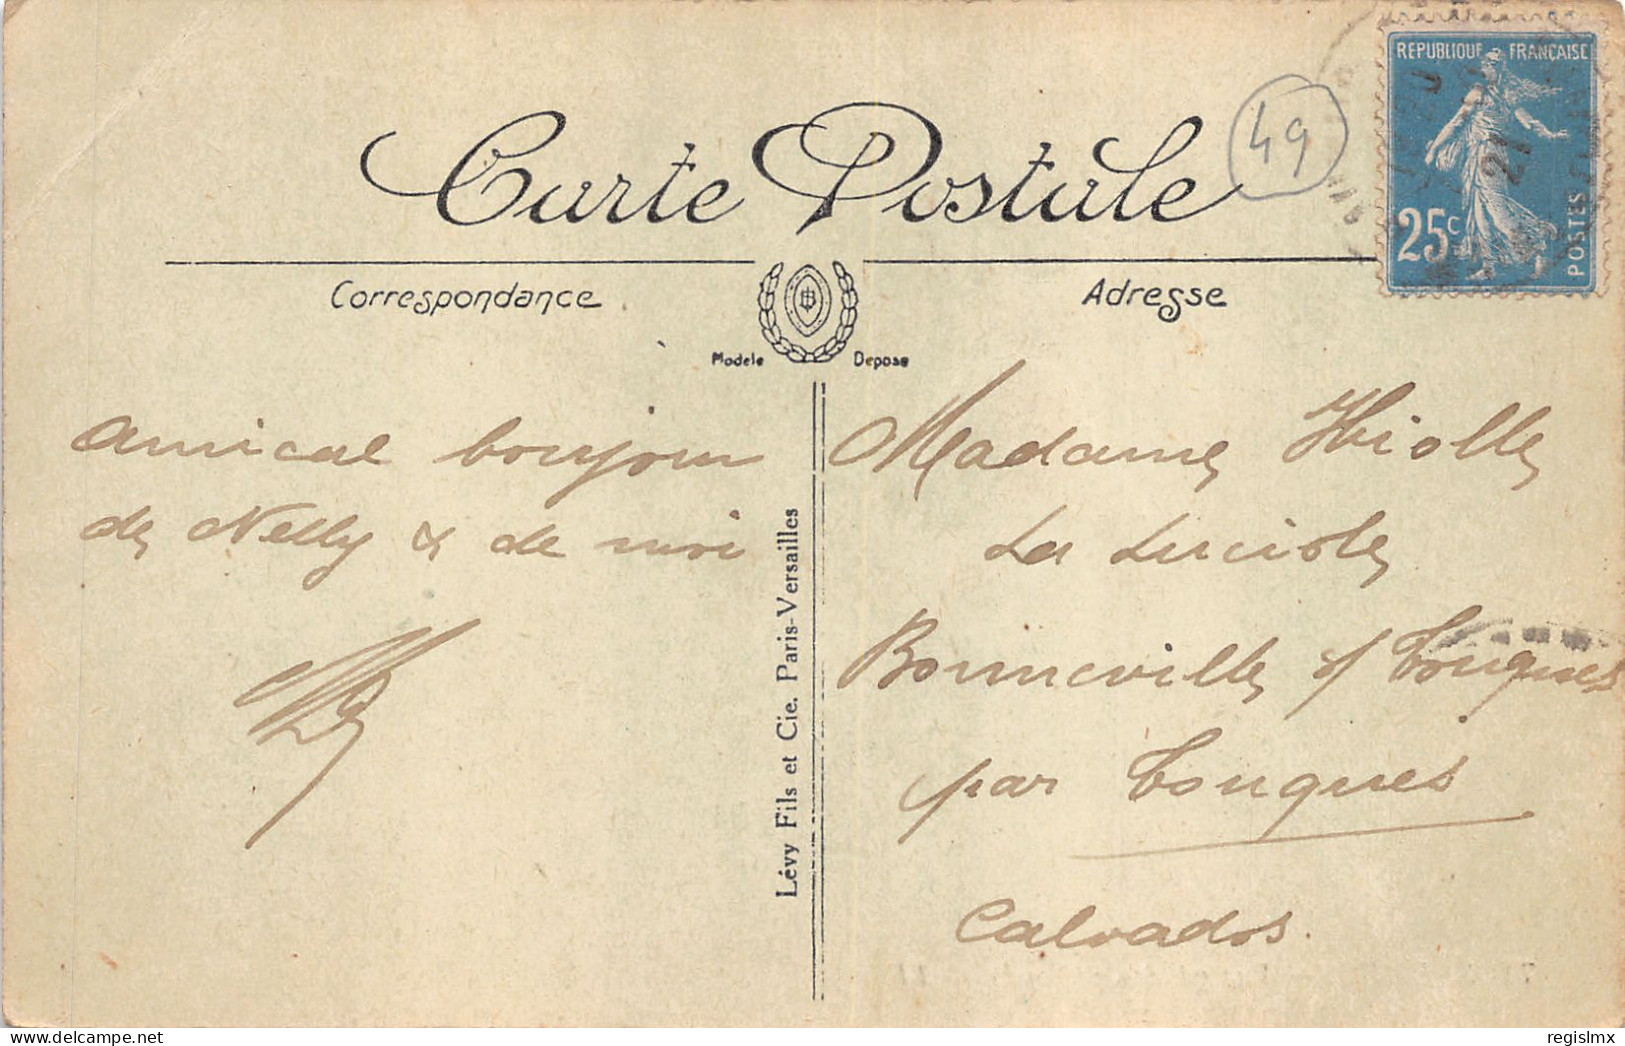 Carte Postale
49
REPUBLIQUE FRANÇAISE
25c
POSTES
21
Correspondance
Adresse
Modele Depose
amical bonjour
de Nelly & de moi
Lévy Fils et Cie. Paris-Versailles
Madame Thiolle
La Luciole
Bonneville s/ Touques
par Touques
Calvados.
delcampe.net
regislmx